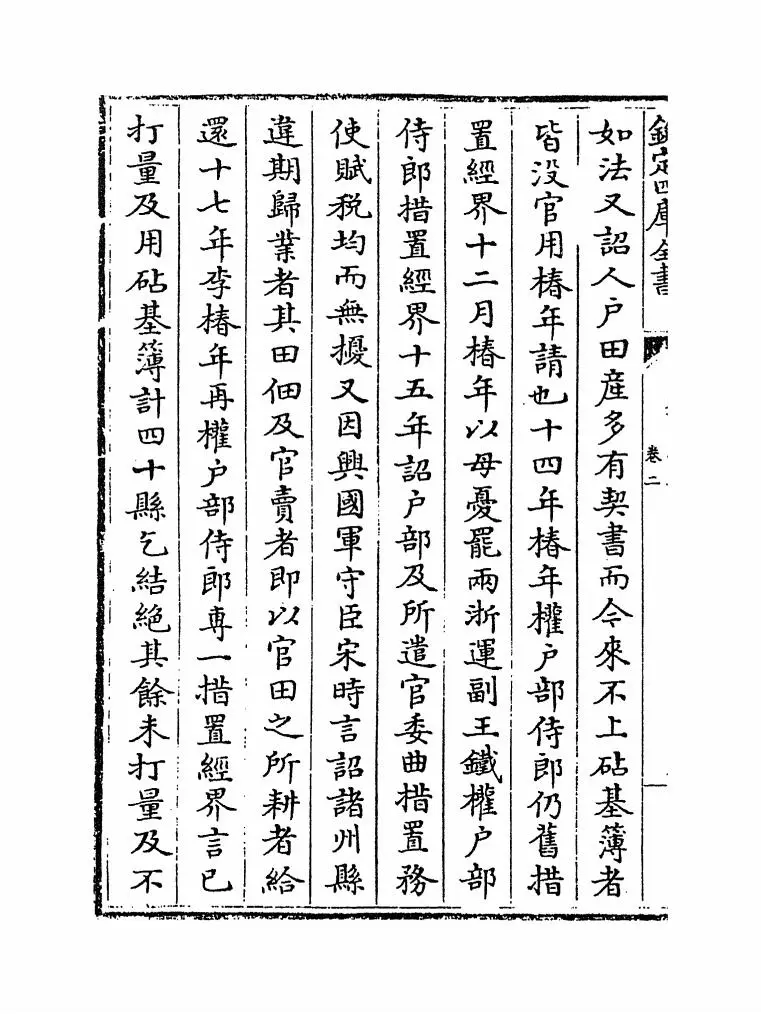 欽定四庫全書
卷二
如法又詔人户田産多有契書而今來不上砧基簿者
皆没官用椿年請也十四年椿年權户部侍郎仍舊措
置經界十二月椿年以母憂罷兩浙運副王鐵權户部
侍郎措置經界十五年詔户部及所遣官委曲措置務
使賦税均而無擾又因興國軍守臣宋時言詔諸州縣
違期歸業者其田佃及官賣者即以官田之所耕者給
還十七年李椿年再權户部侍郎專一措置經界言已
打量及用砧基簿計四十縣乞結絶其餘未打量及不